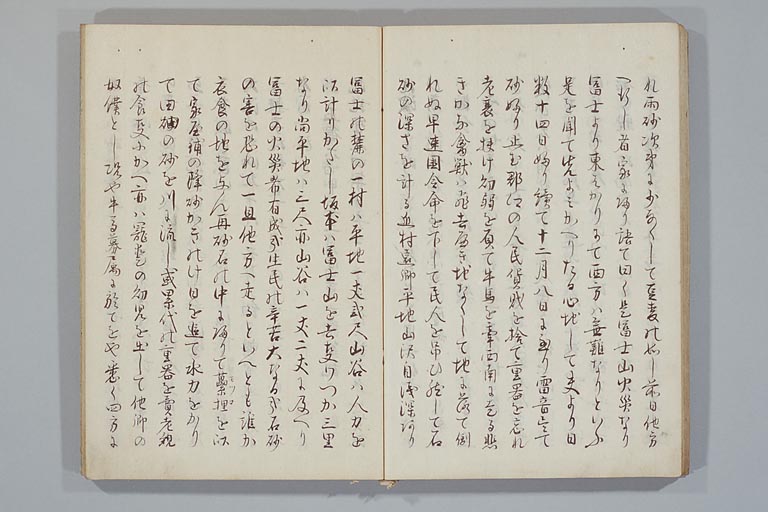 れ雨砂次第に少なくして直麦のめし前日他方
へ行し者家に帰り語て曰く是富士山火災なり
冨士より東えかりにて西方は無難なりといふ
是を聞て先よみかへりたる心地して夫より日
数十四日ふり續て十二月八日に至り雷音亡て
砂ふり止む郡辺の人民貨賊を捨て重器を忘れ
老衰を扶け幼弱を負て牛馬を牽西南に走る悲
きかな禽獣は飛去へき地なくして地に落て倒
れぬ早速國令命を下して民人を吊ひ然して石
砂の深さを計る近村遠郷平地山沢自浅深あり
冨士の麓の一村は平地一丈弐尺山谷は人力を
以計りかたし坂本は冨士山を去事わつか三里
なり尚平地は三尺亦山谷は一丈二丈に及へり
冨士の火災希有成哉生民の辛苦大なる哉石砂
の害を恐れて一旦他方へ走るといへとも誰か
衣食の地を与ん再砂石の中に帰りて藁埋を以
て家屋鋪の降砂かきのけ日を追て水力をかり
て田畑の砂を川に流し或累代の重器を賣老親
の食事にかへ亦は寵愛の幼児を出して他郷の
奴僕とし況や牛馬眷属に於てをや悉く四方に